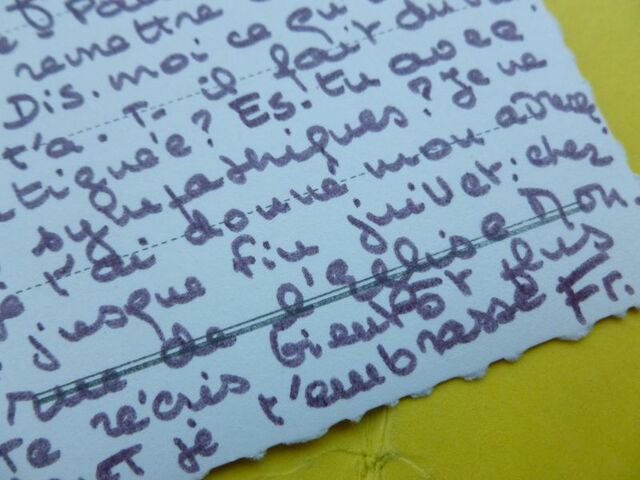 remettre ce qu
Dis. moi ce
t'a. T- il fait du
tiguée? ES. tu avec
sympathiques? Je ne
t'ai donné mon adresse
jusque fin juillet: chez
rue de l'eglise Mon
Te récris bientôt plus
ET je t'embrasse Fr.